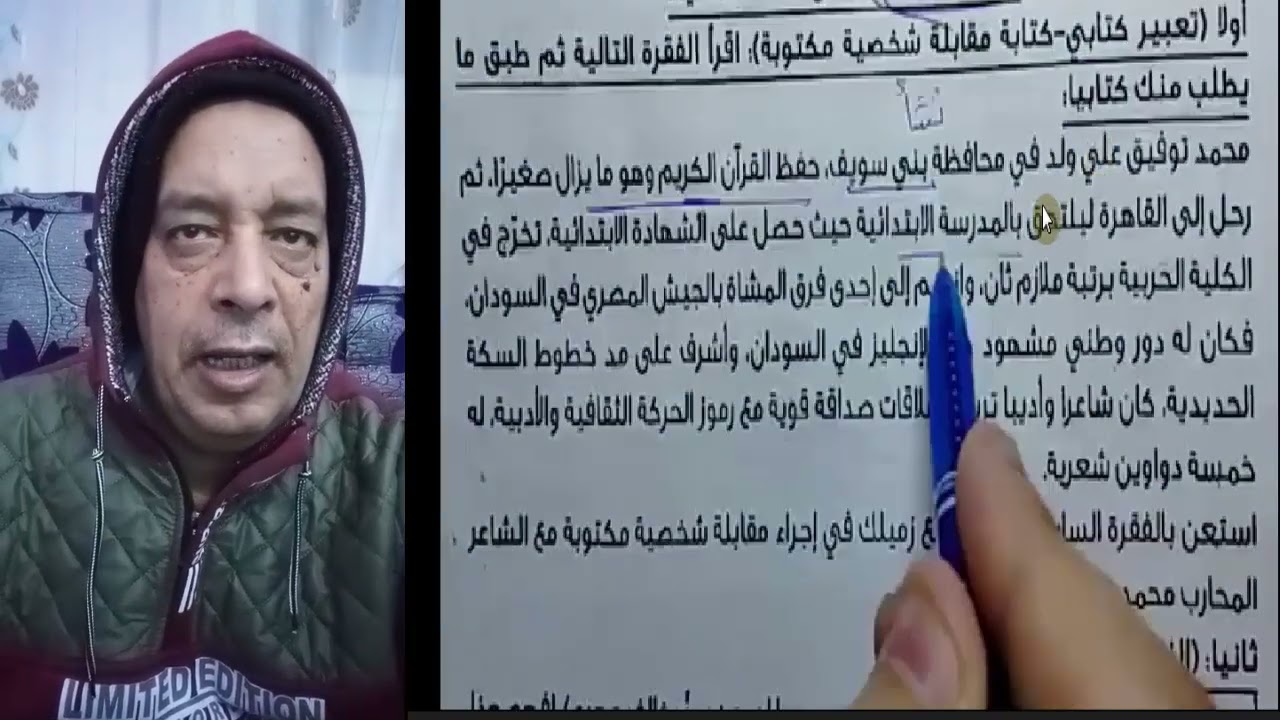 أولا (تعبير كتابي-كتابة مقابلة شخصية مكتوبة)، اقرأ الفقرة التالية ثم طبق ما
يطلب منك كتابيا:
نشأ
محمد توفيق علي ولد في محافظة بني سويف، حفظ القرآن الكريم وهو ما يزال صغيرًا، ثم
رحل إلى القاهرة ليلتحق بالمدرسة الابتدائية حيث حصل على الشهادة الابتدائية، تخرّج في
الكلية الحربية برتبة ملازم ثان، إلى إحدى فرق المشاة بالجيش المصري في السودان،
فكان له دور وطني مشهود الإنجليز في السودان، وأشرف على مد خطوط السكة
الحديدية، كان شاعرا وأديبا صداقة قوية مع رموز الحركة الثقافية والأدبية، له
خمسة دواوين شعرية.
استعن بالفقرة زميلك في إجراء مقابلة شخصية مكتوبة مع الشاعر
المحارب محمد
ثانيا:
LIMITED EDITION